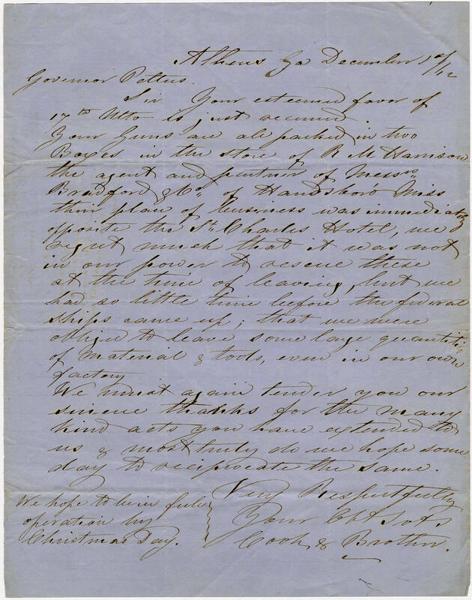 Athens Ga December 1st/62
Governor Pettus.
Sir Your esteemed favor of
17th Ulto is just received
Your Guns are all packed in two
Boxes in the store of R. M Harrison
the agent and partner of Messrs
Bradford & Co of Handsboro Miss
their place of business was immediately
opposite the St Charles Hotel, we
regret much that it was not
in our power to rescue these
at the time of leaving, but we
had so little time before the federal
ships came up; that we were
obliged to leave some large quantities
of Material & tools, even in our own
factory
We must again tender you our
sincere thanks for the many
kind acts you have extended to
us & most truly do we hope some
day to reciprocate the same.
Very Respectfully
Your Obt Svts
Cook & Brother.
We hope to be in full
operation by
Christmas Day.